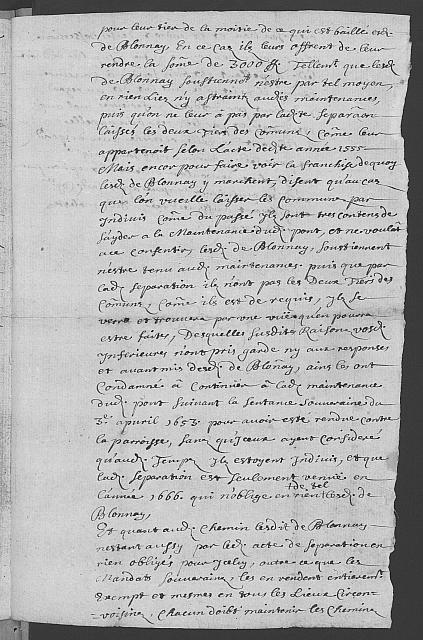 pour leur tier de la moitie de ce qui est baillé esd.
de Blonnay En ce cas ils leurs offrent de leur
rendre la some de 3000 ff Tellemt que lesd
de Blonnay soustiennet n'estre par tel moyen,
en rien Liez ny astraint audes maintenances
puis qu'on ne leur à pas par ladte separaon
laisses les deux tiers des Comuns, Come leur
appartenoit selon Lacte dedte année 1555
Mais encor pour faire voir la franchise de quoy
lesd de Blonnay y marchent, disent qu'au cas
que l'on vueille laisser les commune par
Indivis come du passé Ils sont tres contens de
s'ayder a la Maintenance dud pont, et ne voulant
a ce consentir, lesd. de Blonnay, soustiennent
n'estre tenu aud maintenances puis que par
lad separation ils n'ont pas les Deux Tiers des
Comuns, Come ils est de requis, Il se
verra et trouvera par une vüe qu'en pourra
estre faites, Desquelles susdites Raisons vosd.
Inferieures n'ont pris garde ny aux responses
et avant mis desd. de Blonay, ains les ont
Condamné à Continuer à lad maintenance
dud. pont suivant la sentance souveraine du
3e apvril 1653 pour avoir esté rendue contre
la parroisse, sans qu'iceux ayent consideré
qu'aud. Temps Ils estoyent Indivis, et que
lad. separation est seulement venue en
l'année 1666 qui n'oblige en rien lesd. de
de tel
Blonnay,
Et quant aud. Chemin lesdit de Blonnay
n'estant aussy par led. acte de separation en
rien obligés pour Icely, outre ce que les
Mandats souveraine, les en rendent entieremt
exempt et mesmes en tous les Lieux Circon-
voisins, Chacun doibt maintenir les Chemins